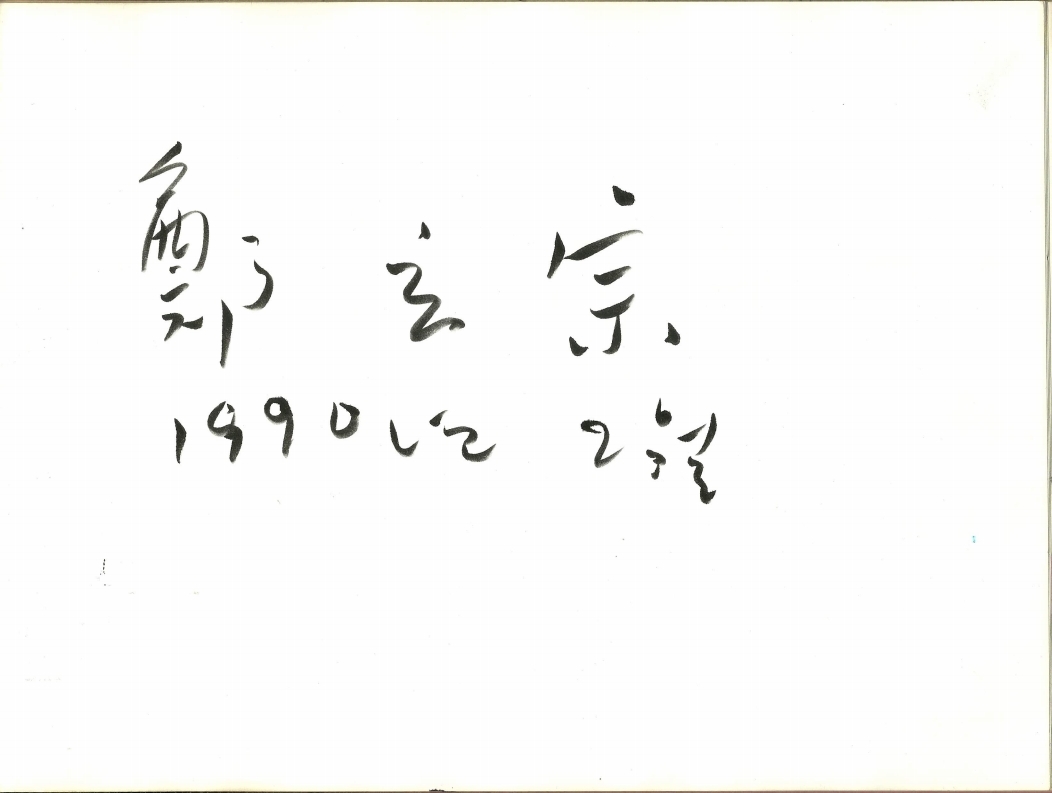 鄭玄宗
1990년 2월